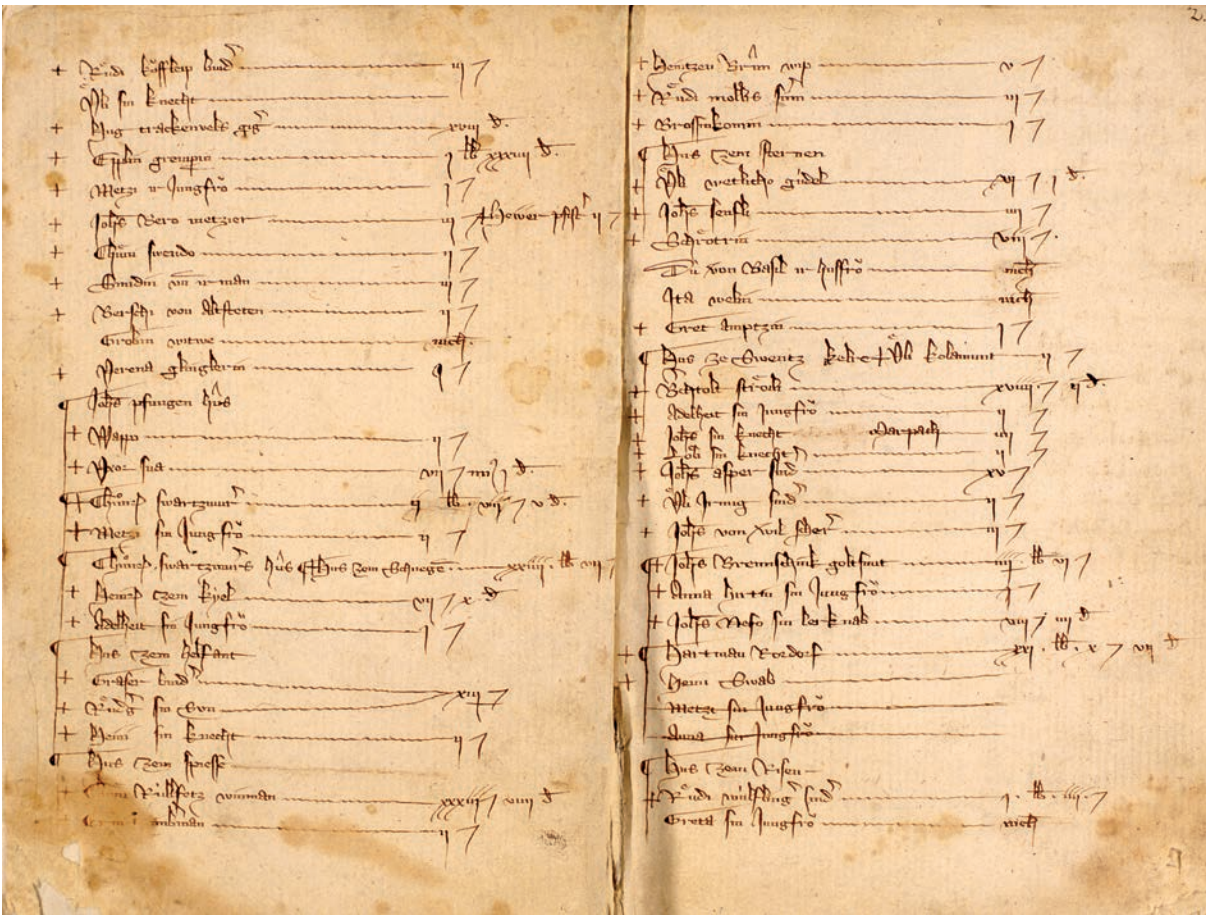 + Růdi köfflein bind' iij ß
Ůli sin knecht
+ Hug trackenvels xviij d.
+ Eppli grempin j lb xxxiiij d.
+ Metzi ir Jungfrö j ß
+ Johs Bero metzier iij ß + Heiver pfist' ij ß
+ Chůni swendo j ß
+ Smidin vñ ir man ij ß
+ Berschi von Altsteten ij ß
Grobin witwe nich.
+ Verena glinglerin ß
¶ Johs pfungen hus
+ Wappo ij ß
+ Vxor sua vij ß iiij d.
¶ + Chůnr swartzmur' lb. viij ß v d.
+ Metzi sin Jungfrö ij ß
¶ Chůnr swartzmurs hus ¶ + Hus zem Schnegē xxiiij. lb vij ß
+ Heinr zem kyel vij ß x d
+ Adelheit sin Jungfrö j ß
¶ Hus zem helfant
+ Graser bind'
+ Růdg' sin Svn xiij ß
+ Heini sin knecht ij ß
¶ Hus zem spiesse
+ Rüllsotz winman xxxiij ß viij d
ij ß
2.
+ Heintzen Brun wip v ß
+ Růdi molbs sun iij ß
+ Brossinkomin j ß
¶ Hus zem sternen
+ Ůli wetlicho gúdel xj ß j d.
+ Johs senfli iiij ß
+ Schrötrin viij ß
Dú von Basil ir husfrö nich
Ita webin nich
+ Gret amptzin j ß
¶ Hus ze Swentz kelr + Ůli kolamunt ij ß
+ Bechtolt ströli xviiij. ß ij d.
+ Adelheit sin Jungfrö ij ß
+ Johs sin knecht Marpach iiij ß
+ sin knecht ij ß
+ Johs asper snid' xv ß
+ Ůli Irmig snid' ij ß
+ Johs von Xwil scher' iij ß
¶ + Johs Brennschink goltsmit iiij. lb vj ß
+ Anna hirtin sin Jungfrö j ß
+ Johs Nefo sin lerknab viij ß iiij d
+ ¶ Hartman Rordorf xxj. lb. x ß vij d
+ Heini Swab
Metzi sin Jungfrö
Anna sin Jungfrö
¶ Hus zem Risen
+ Růdi wulfling' snid' j. lb. iiij. ß
Greta sin Jungfrö nich